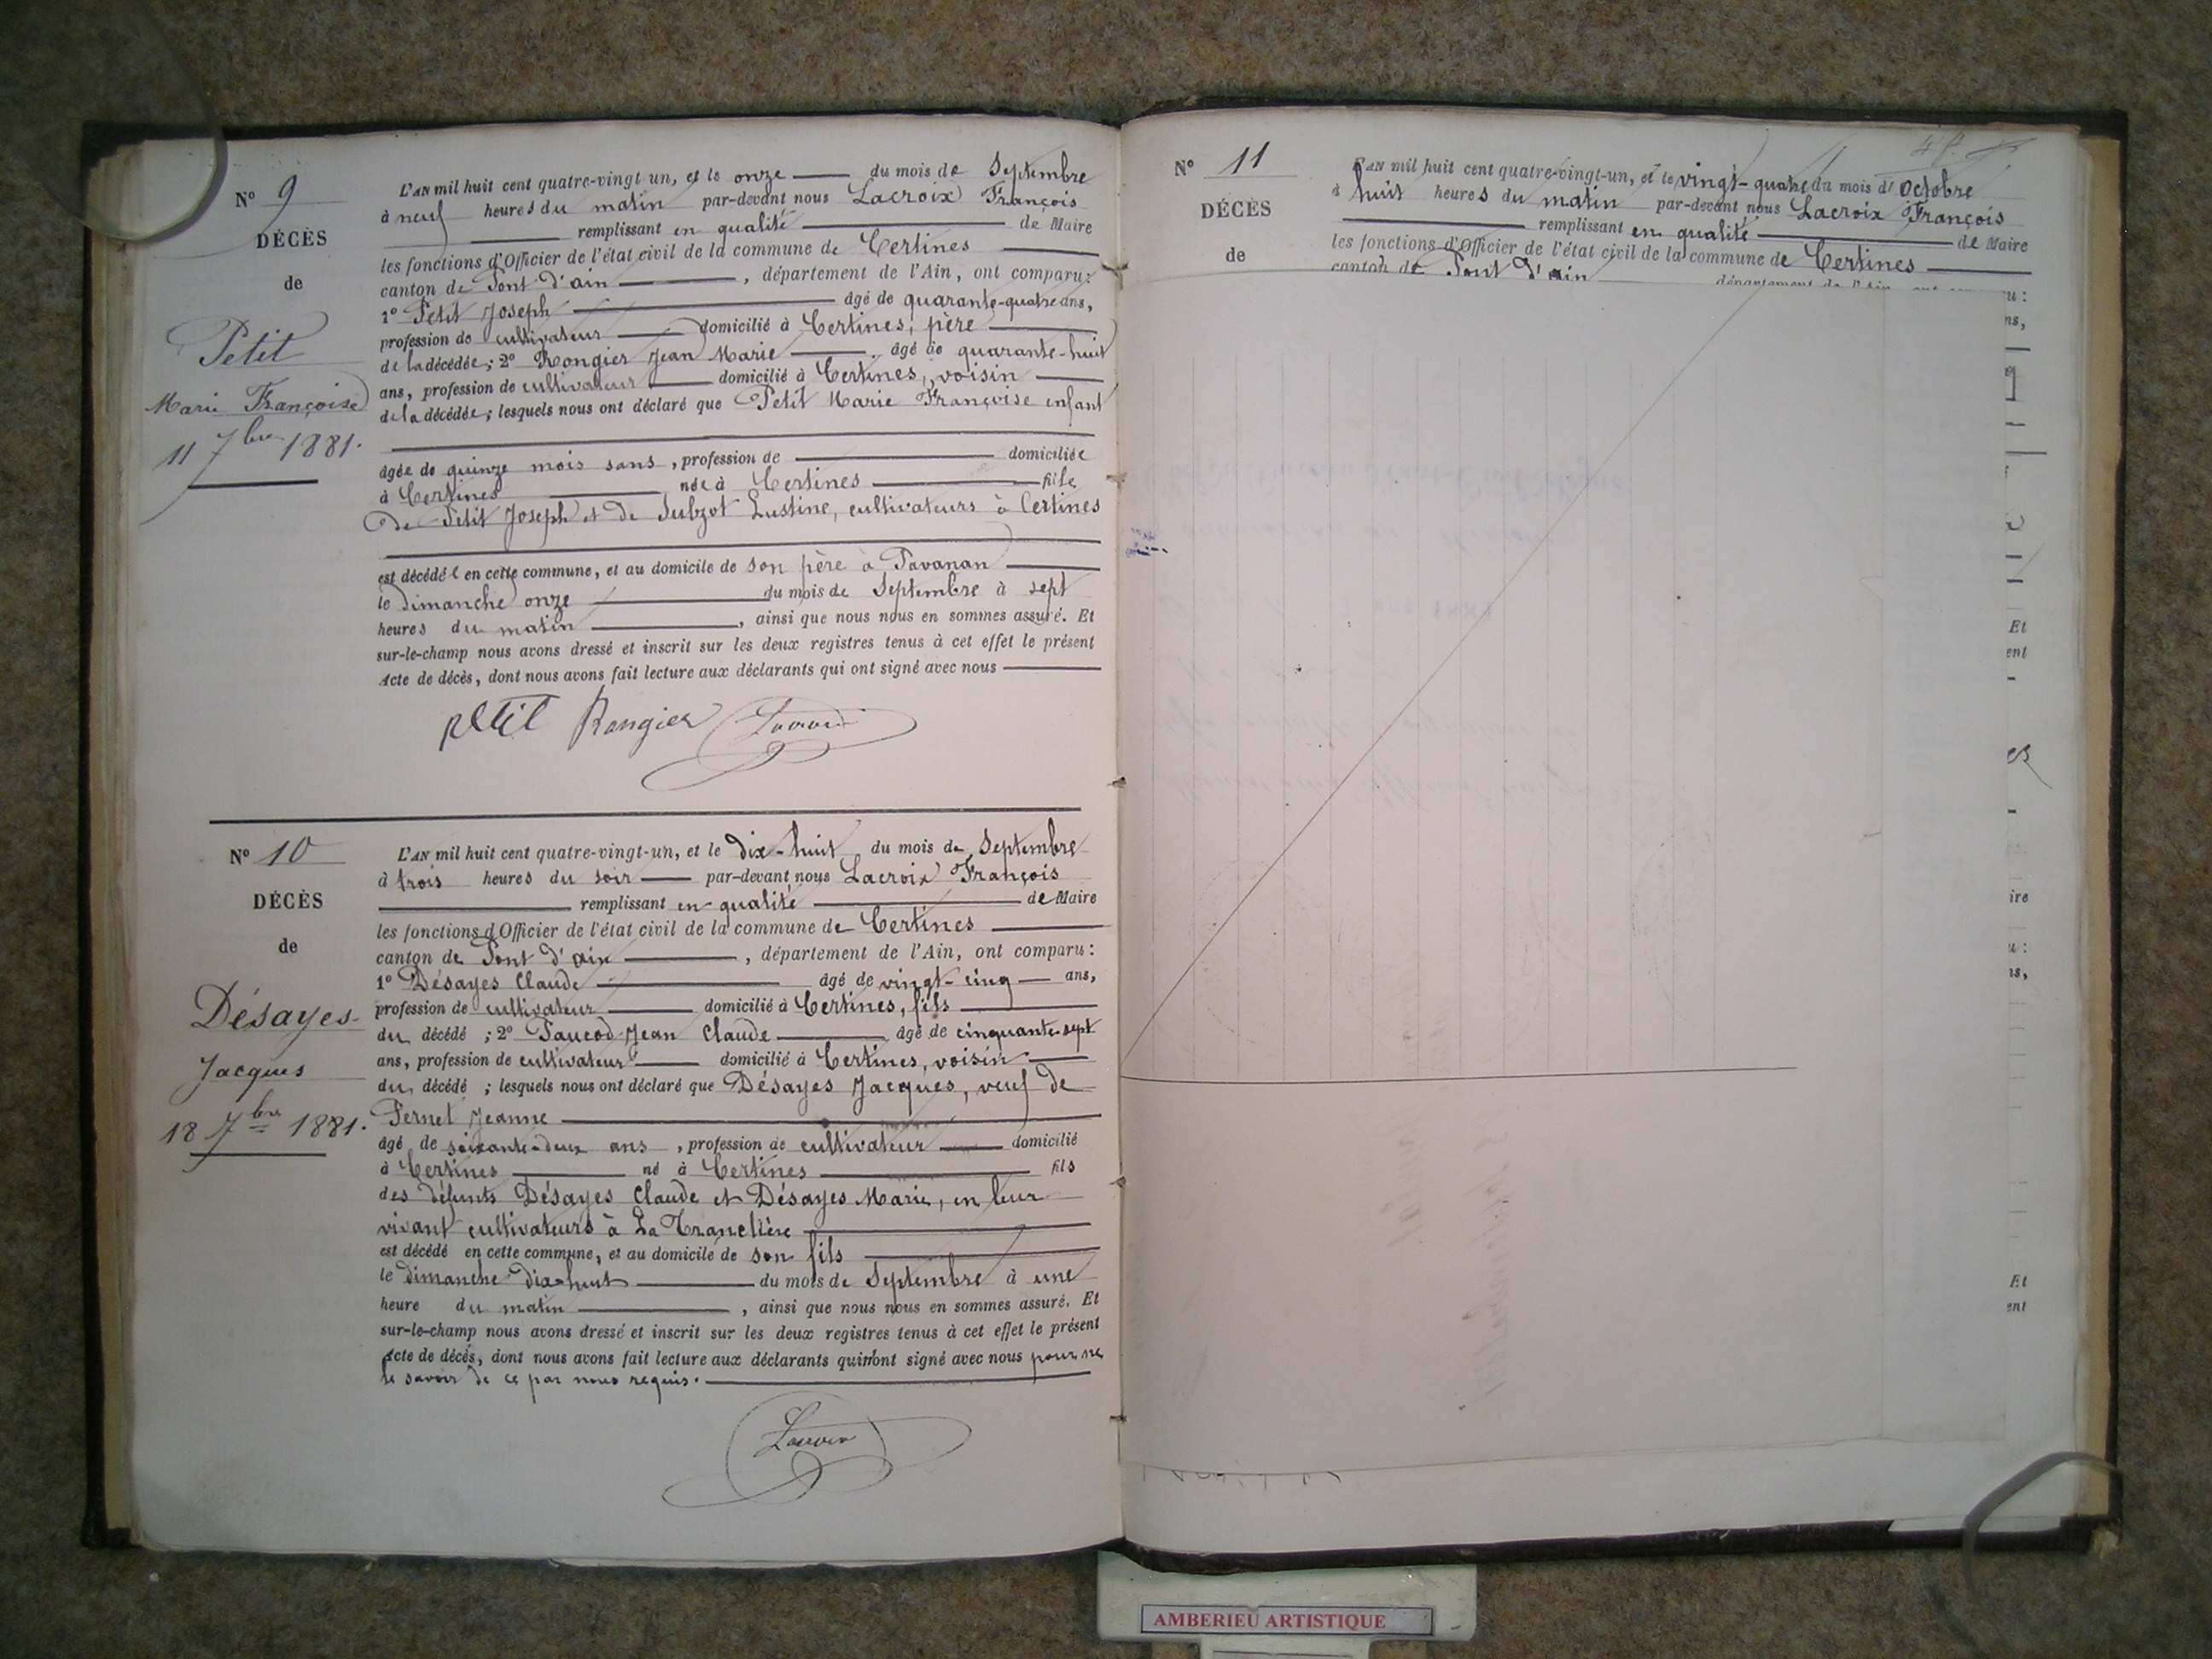 N° 9
DÉCÈS
de
Petit
Marie Françoise
11 7bre 1881.
L'AN mil huit cent quatre-vingt un, et le onze du mois de Septembre
à neuf heures du matin par-devant nous Lacroix François
remplissant en qualité de Maire
les fonctions d'Officier de l'état civil de la commune de Certines
canton de Pont d'ain, département de l'Ain, ont comparu:
1° Petit Joseph âgé de quarante-quatre ans,
profession de cultivateur domicilié à Certines, père
de la décédée; 2° Rongier Jean Marie âgé de quarante-huit
ans, profession de cultivateur domicilié à Certines, voisin
de la décédée; lesquels nous ont déclaré que Petit Marie Françoise enfant
âgée de quinze mois sans, profession de domiciliée
à Certines née à Certines fille
De Petit Joseph et de Justine, cultivateurs à Certines
est décédée en cette commune, et au domicile de son père à Pavanan
le Dimanche onze du mois de Septembre à sept
heures du matin, ainsi que nous nous en sommes assuré. Et
sur-le-champ nous avons dressé et inscrit sur les deux registres tenus à cet effet le présent
Acte de décès, dont nous avons fait lecture aux déclarants qui ont signé avec nous
petit Rongier Lacroix
N° 10
DÉCÈS
de
Désayes
Jacques
18 7bre 1881.
L'AN mil huit cent quatre-vingt-un, et le dix-huit du mois de Septembre
à trois heures du soir par-devant nous Lacroix François
remplissant en qualité de Maire
les fonctions d'Officier de l'état civil de la commune de Certines
canton de Pont d'ain, département de l'Ain, ont comparu:
1° Désayes Claude âgé de vingt-cinq ans,
profession de cultivateur domicilié à Certines, fils
du décédé; 2° Paucod Jean Claude âgé de cinquante-sept
ans, profession de cultivateur domicilié à Certines, voisin
du décédé; lesquels nous ont déclaré que Désayes Jacques, veuf de
Pernet Jeanne
âgé de soixante-deux ans, profession de cultivateur domicilié
à Certines né à Certines fils
des défunts Désayes Claude et Désayes Marie, en leur
vivant cultivateurs à La Tranclière
est décédé en cette commune, et au domicile de son fils
le Dimanche Dix-huit du mois de Septembre à une
heure du matin, ainsi que nous nous en sommes assuré. Et
sur-le-champ nous avons dressé et inscrit sur les deux registres tenus à cet effet le présent
Acte de décès, dont nous avons fait lecture aux déclarants qui n'ont signé avec nous pour ne
le savoir de ce par nous requis.
Lacroix
N° 11
DÉCÈS
de
L'AN mil huit cent quatre-vingt-un, et le vingt-quatre du mois d'Octobre
à huit heures du matin par-devant nous Lacroix François
remplissant en qualité de Maire
les fonctions d'Officier de l'état civil de la commune de Certines
canton de Pont d'ain département de l'Ain
u:
ns,
Et
ent
ire
u:
ns,
Et
ent
AMBERIEU ARTISTIQUE